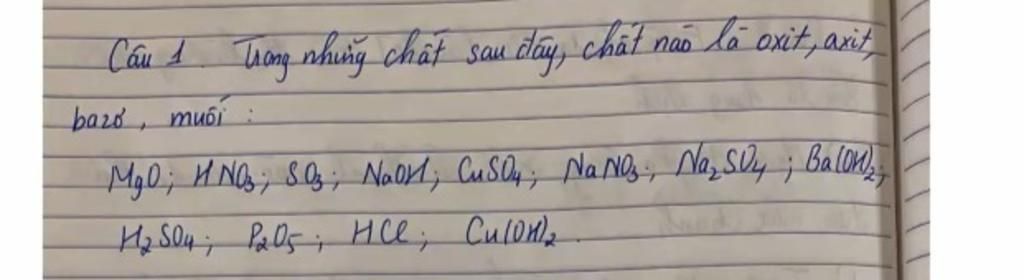 Câu 1. Trong những chất sau đây, chất nào là oxit, axit,
bazơ, muối :
MgO; HNO₃; SO₃; NaOH; CuSO₄; NaNO₃; Na₂SO₄; Ba(OH)₂;
H₂SO₄; P₂O₅; HCl; Cu(OH)₂.